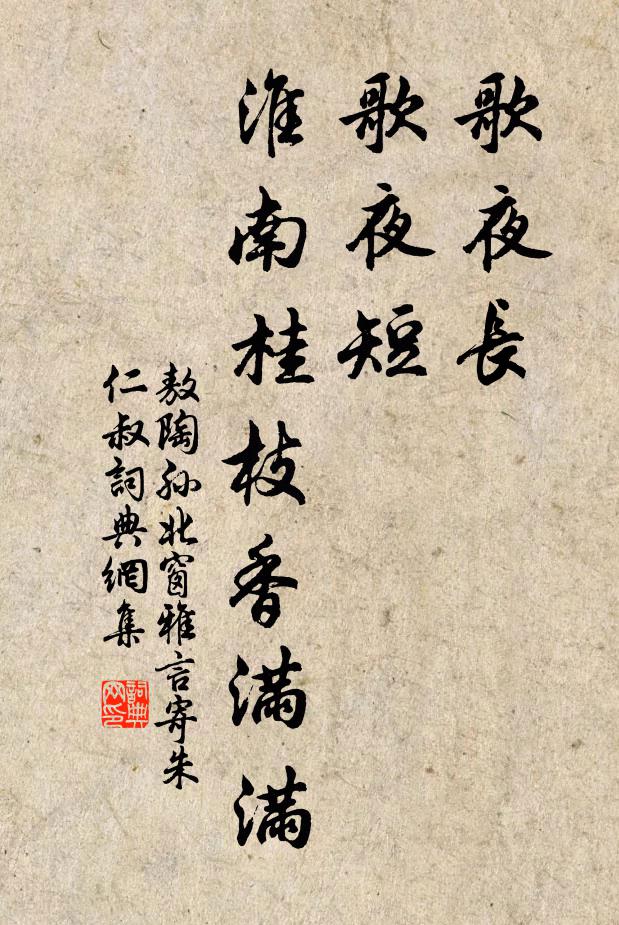 歌夜長
歌夜短
淮南桂枝香滿滿
敖陶孫北窗雅言寄朱
仁叔詞典網集
詞典
网印